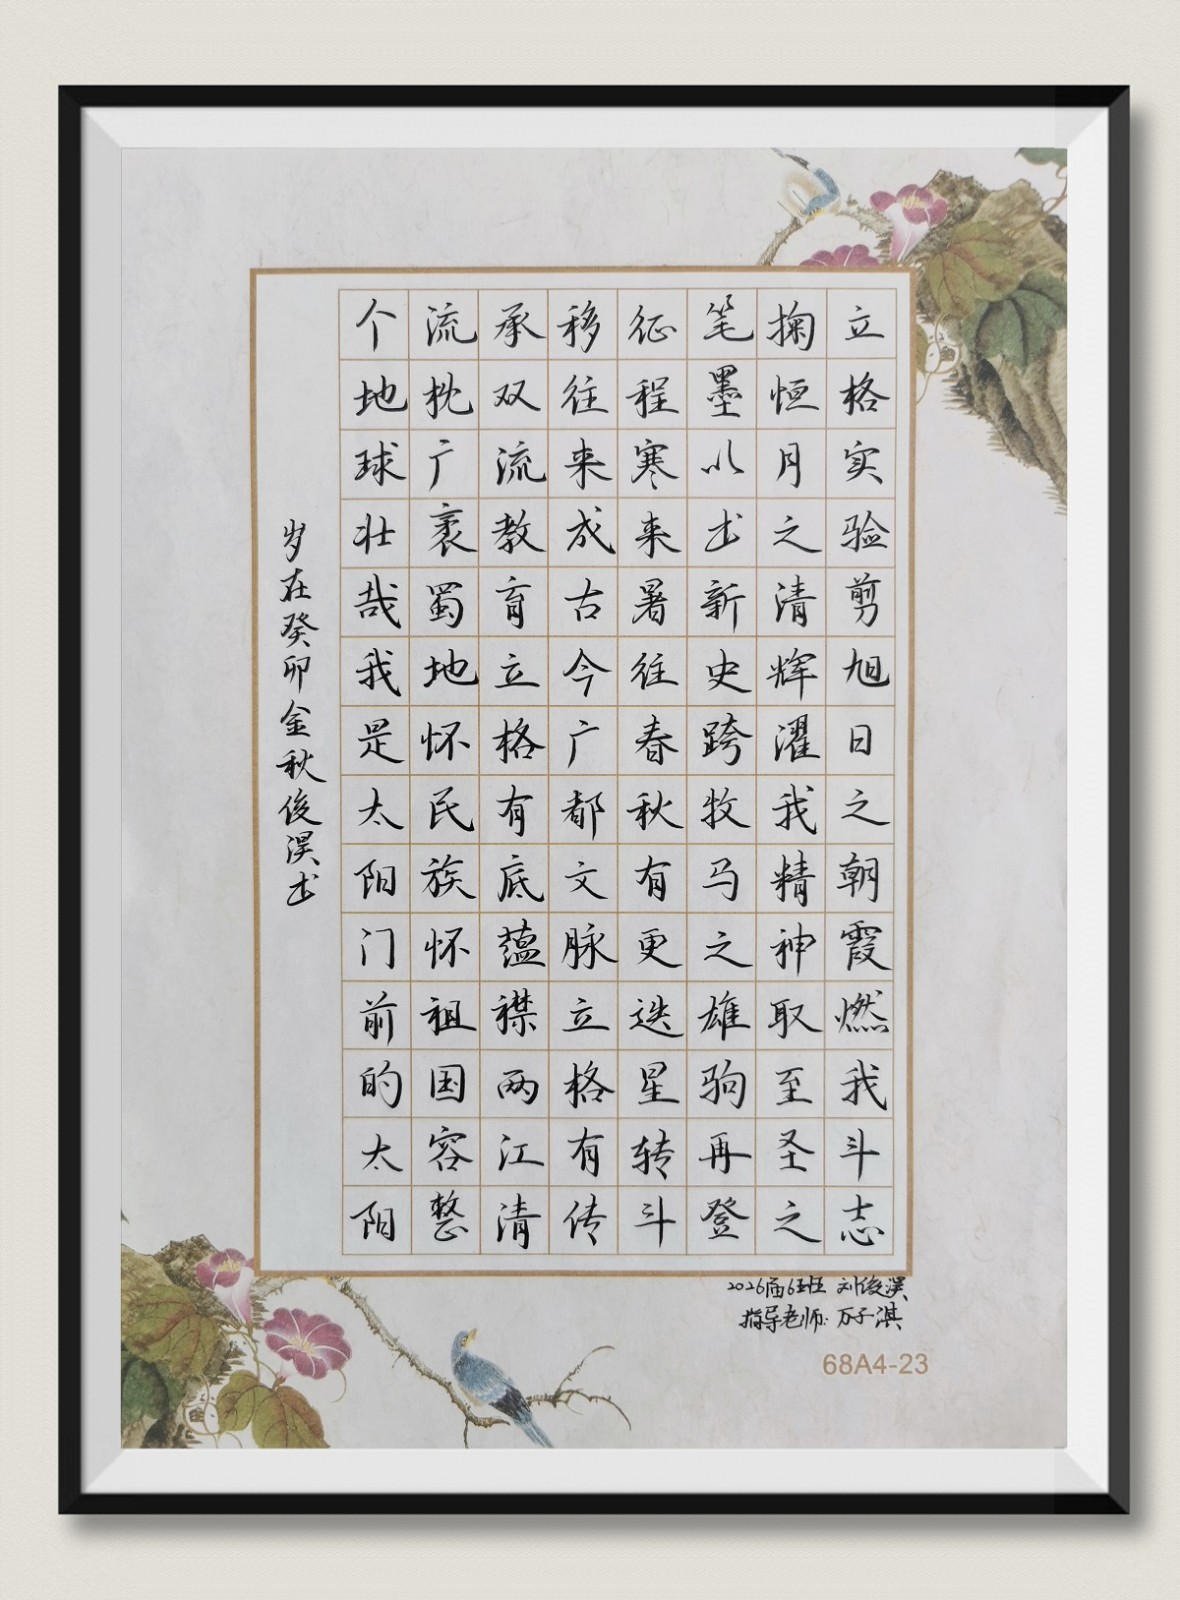 立格实验剪旭日之朝霞燃我斗志
掬恒月之清辉濯我精神取至圣之
笔墨以书新史跨牧马之雄驹再登
征程寒来暑往春秋有更迭星转斗
移往来成古今广都文脉立格有传
承双流教育立格有底蕴襟两江清
流枕广袤蜀地怀民族怀祖国容整
个地球壮哉我是太阳门前的太阳
岁在癸卯金秋俊淏书
2026届6班 刘俊淏
指导老师:万子淇
68A4-23